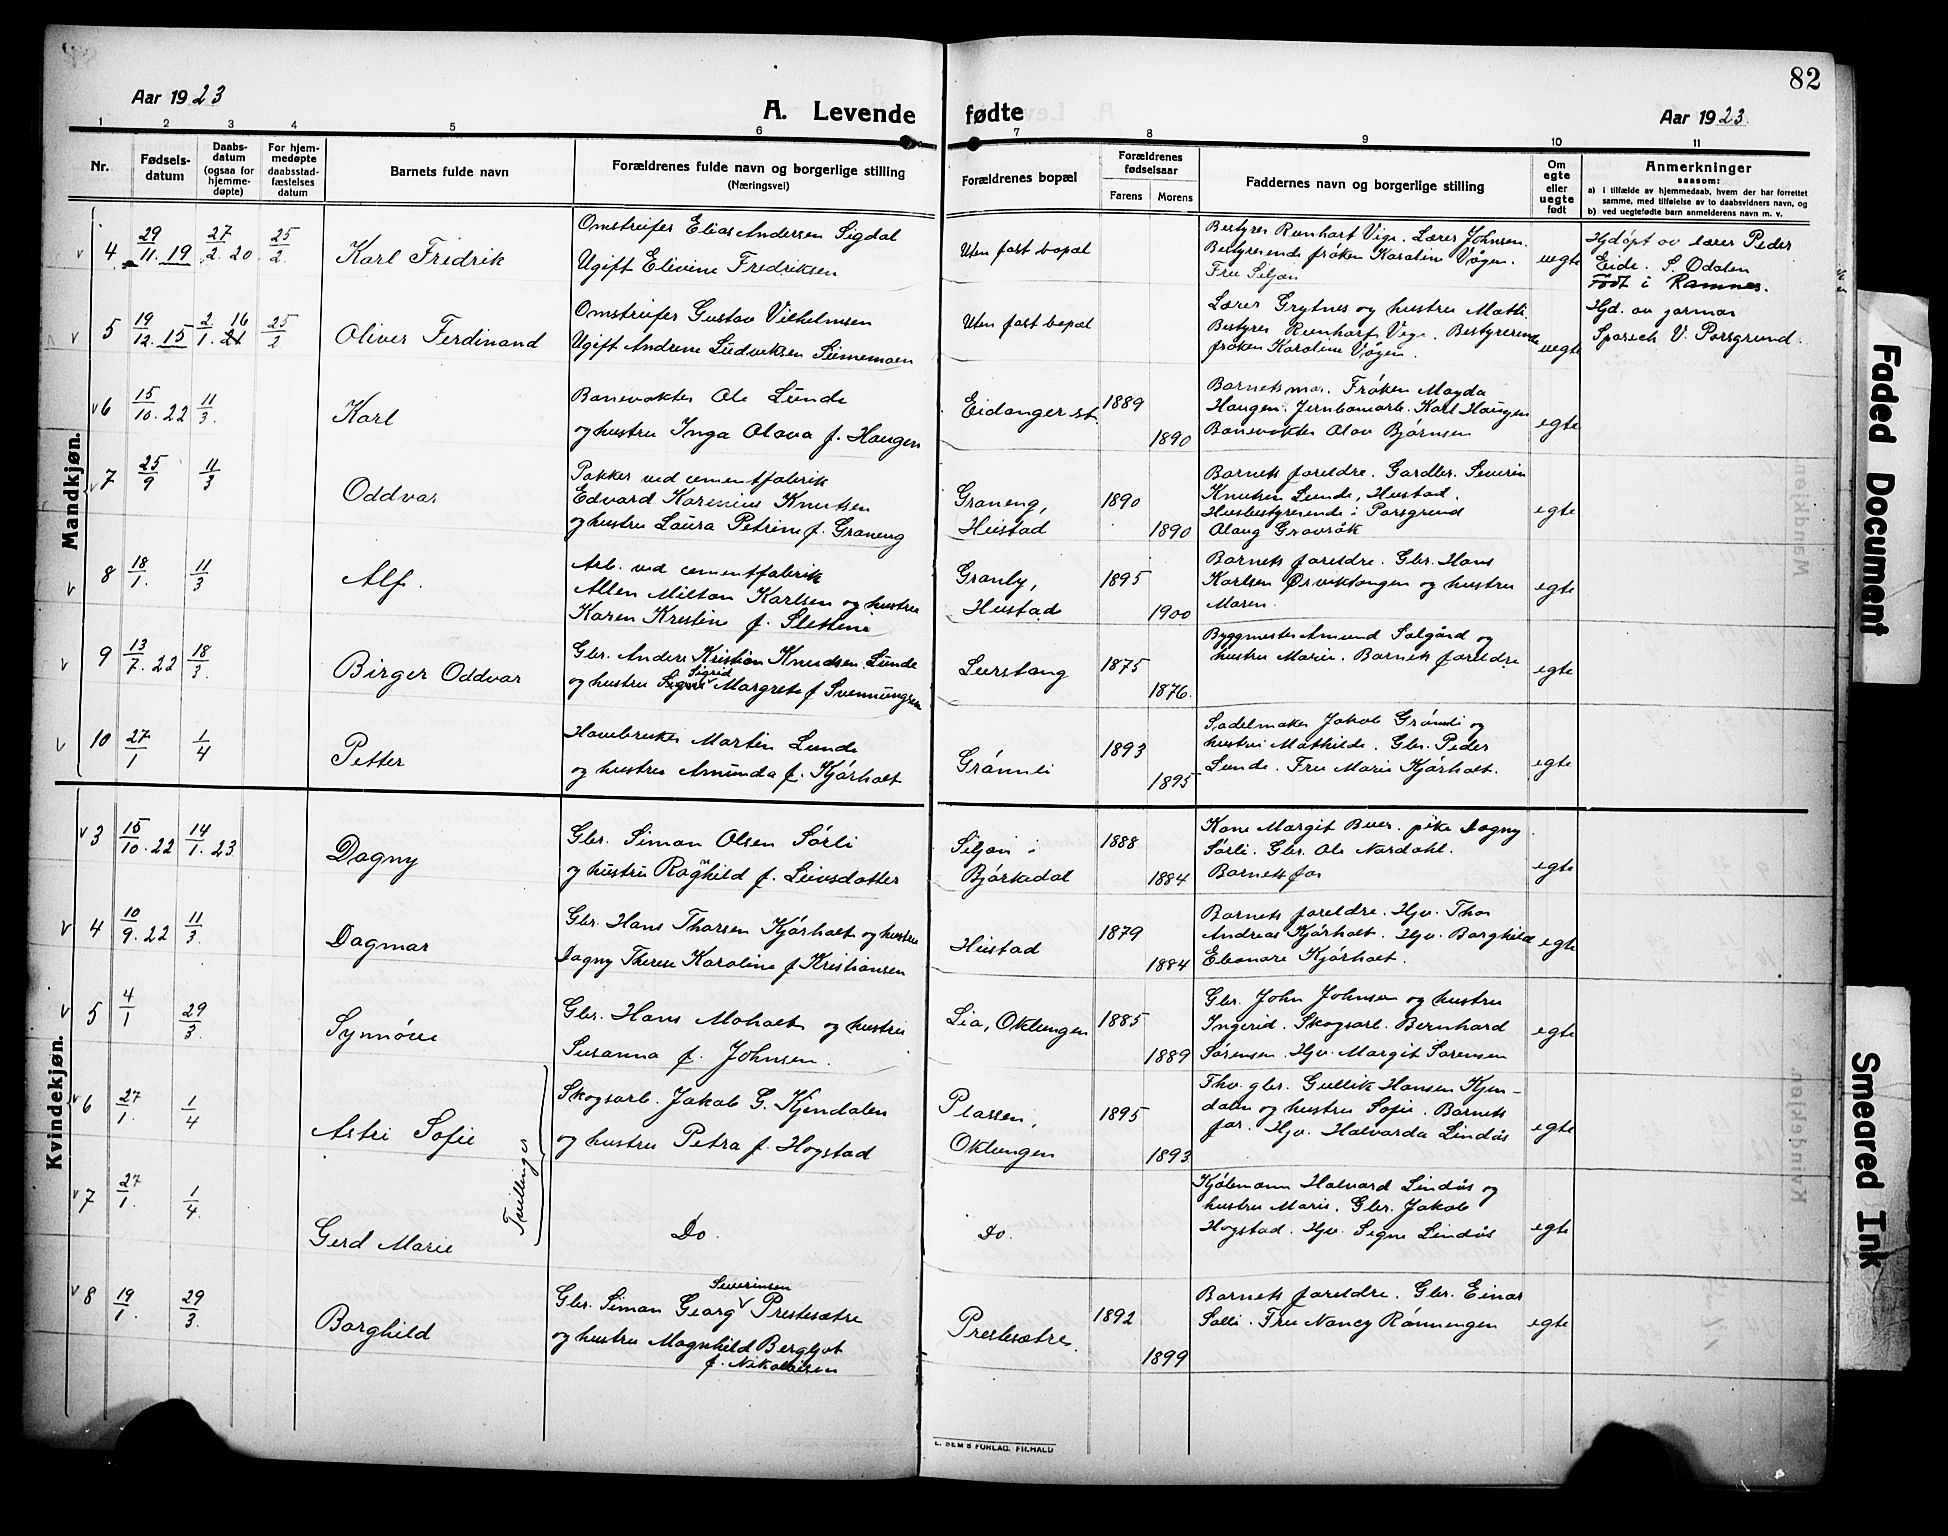 82
Aar 1923
A. Levende fødte
Aar 1923.
1 2 3 4 5 6 7 8 9 10 11
Nr.
Fødsels-
datum
Daabs-
datum
(ogsaa for
hjemme-
døpte)
For hjem-
medøpte
daabsstad-
fæstelses
datum
Barnets fulde navn
Forældrenes fulde navn og borgerlige stilling
(Næringsvei)
Forældrenes bopæl
Forældrenes
fødselsaar
Farens Morens
Faddernes navn og borgerlige stilling
Om
egte
eller
uegte
født
Anmerkninger
saasom:
a) i tilfælde av hjemmedaab, hvem der har forrettet
samme, med tilføielse av to daabsvidners navn, og
b) ved uegtefødte barn anmelderens navn m. v.
Mandkjøn.
4 29/11.19 27/2.20 25/2 Karl Fredrik
Omstreifer Elias Andersen Sigdal
Ugift Elevine Fredriksen
Uten fast bopæl
Bestyrer Reinhart Vige. Lærer Johnsen.
Bestyrerende frøken Karoline Vøgen.
Fru Seljan
uegte
Hjdøpt av lærer Peder
Eide. S. Odalen
Født i Ramnes.
5 19/12.15 2/1.16 21 25/2 Oliver Ferdinand
Omstreifer Gustav Vilhelmsen
Ugift Andrene Ludviksen Sunnemoen
Uten fast bopæl
Lærer Grytnes og hustru Mathi.
Bestyrer Reinhart Vige. Bestyrerinde
frøken Karoline Vøgen.
uegte
Hjd. av jormor
Sporsem V. Porsgrund.
6 15/10.22 11/3 Karl
Banevokter Ole Lunde
og hustru Inga Olava f. Haugen
Eidanger st.
1889
1890
Barnets mor. Frøken Magda
Haugen. Jernbanearb. Karl Haugen
Banevokter Olav Bjørnsen
egte
7 25/9 11/3 Oddvar
Pakker ved cementfabrik
Edvard Karenius Knutsen
og hustru Laura Petrine f. Graneng
Graneng,
Heistad
1890
1890
Barnets foreldre. Gardbr. Severin
Knutsen Lunde, Heistad.
Husbestyrerende i Porsgrund
Olaug Gravråk
egte
8 18/1. 11/3 Alf.
Arb. ved cementfabrik
Allen Milton Karlsen og hustru
Karen Kristine f. Slettene
Granly,
Heistad
1895
1900
Barnets foreldre. Gbr. Hans
Karlsen Ørviktangen og hustru
Maren.
egte
9 13/7.22 18/3. Birger Oddvar
Gbr. Anders Kristian Knudsen Lunde
Sigrid
og hustru Signe Margrete f. Svennungsen
Leirstang
1875
1876.
Byggmester Amund Solgård og
hustru Marie. Barnets foreldre
egte
10 27/1 1/4 Petter
Havebruker Martin Lunde
og hustru Amunda f. Kjørholt
Grønli
1893
1895
Sadelmaker Jakob Grønli og
hustru Mathilde. Gbr. Peder
Lunde. Fru Marie Kjørholt.
egte
Kvindekjøn.
3 15/10.22 14/1.23 Dagny
Gbr. Simon Olsen Sørli
og hustru Ragnhild f. Leivsdatter
Siljan i
Bjørkedal
1888
1884
Kone Margit Buer. pike Dagny
Sørli. Gbr. Ole Nordahl.
Barnets far
egte
4 10/9.22 11/3. Dagmar
Gbr. Hans Thorsen Kjørholt og hustru
Dagny Therese Karoline f. Kristiansen
Heistad
1879
1884
Barnets foreldre. Hjv. Thor
Andreas Kjørholt. Hjv. Borghild
Eleonore Kjørholt.
egte
5 4/1 29/3. Synnøve
Gbr. Hans Moholt og hustru
Susanna f. Johnsen.
Lia, Oklungen
1885
1889
Gbr. John Johnsen og hustru
Ingerid. Skogsarb. Bernhard
Sørensen. Hjv. Margit Sørensen
egte
6 27/1. 1/4 Astri Sofie
Tvillinger
Skogsarb. Jakob G. Kjendalen
og hustru Petra f. Hogstad
Plassen,
Oklungen
1895
1893
Fhv. gbr. Gullik Hansen Kjen-
dalen og hustru Sofie. Barnets
far. Hjv. Halvarda Lindås
egte
7 27/1. 1/4. Gerd Marie
Do.
Do.
Kjøbmann Halvard Lindås og
hustru Marie. Gbr. Jakob
Hogstad. Hjv. Signe Lindås
egte
8 19/1. 29/3. Borghild
Severinsen
Gbr. Simon Georg Prestesætre
og hustru Magnhild Bergljot
f. Nikolaisen
Prestesætre.
1892
1899
Barnets foreldre. Gbr. Einar
Solli. Fru Nancy Rønningen
egte
E. SEM'S FORLAG. FR.HALD
Faded Document
Smeared Ink